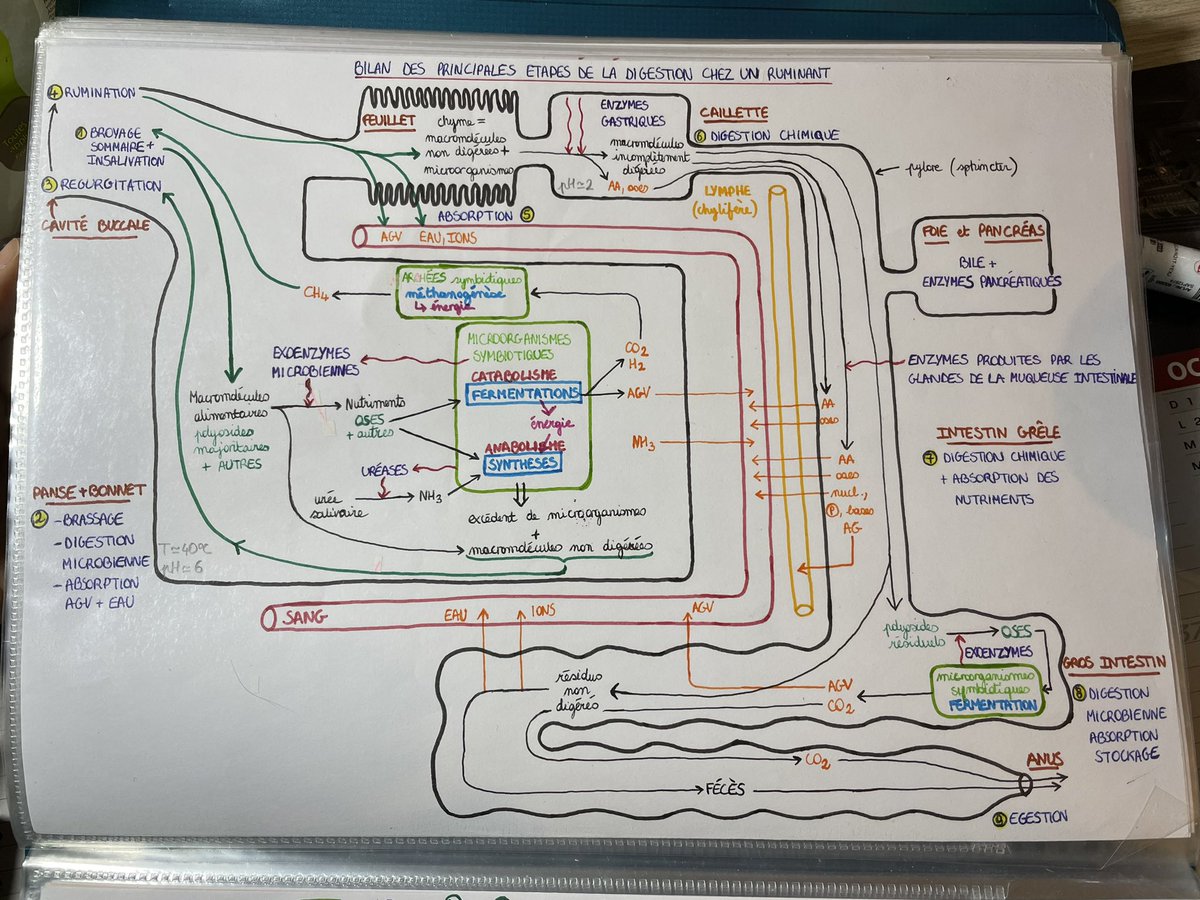 BILAN DES PRINCIPALES ETAPES DE LA DIGESTION CHEZ UN RUMINANT
④ RUMINATION
① BROYAGE
SOMMAIRE +
INSALIVATION
③ REGURGITATION
CAVITÉ BUCCALE
FEUILLET
chyme =
macromolécules
non digérées +
microorganismes
ENZYMES
GASTRIQUES
macromolécules
incomplètement
digérées
pH≃2
AA, oses
CAILLETTE
⑥ DIGESTION CHIMIQUE
pylore (sphincter)
ABSORPTION ⑤
AGV EAU, IONS
LYMPHE
(chylifère)
FOIE et PANCRÉAS
BILE +
ENZYMES PANCRÉATIQUES
ARCHÉES symbiotiques
méthanogénèse
↳ énergie
CH4
MICROORGANISMES
SYMBIOTIQUES
CATABOLISME
FERMENTATIONS
énergie
ANABOLISME
SYNTHÈSES
CO2
H2
AGV
NH3
EXOENZYMES
MICROBIENNES
Macromolécules
alimentaires
polyosides
majoritaires
+ AUTRES
Nutriments
OSES
+ autres
URÉASES
urée
salivaire
NH3
excédent de microorganismes
+
macromolécules non digérées
T≃40°C
pH≃6
PANSE + BONNET
② - BRASSAGE
- DIGESTION
MICROBIENNE
- ABSORPTION
AGV + EAU
ENZYMES PRODUITES PAR LES
GLANDES DE LA MUQUEUSE INTESTINALE
AA
oses
AA
oses
nucl.,
Ⓟ, bases
AG
INTESTIN GRÊLE
⑦ DIGESTION CHIMIQUE
+ ABSORPTION DES
NUTRIMENTS
SANG
EAU
IONS
AGV
polyosides
résiduels
OSES
EXOENZYMES
microorganismes
symbiotiques
FERMENTATION
AGV
CO2
résidus
non
digérés
GROS INTESTIN
⑧ DIGESTION
MICROBIENNE
ABSORPTION
STOCKAGE
CO2
FÉCÈS
ANUS
⑨ EGESTION
OC